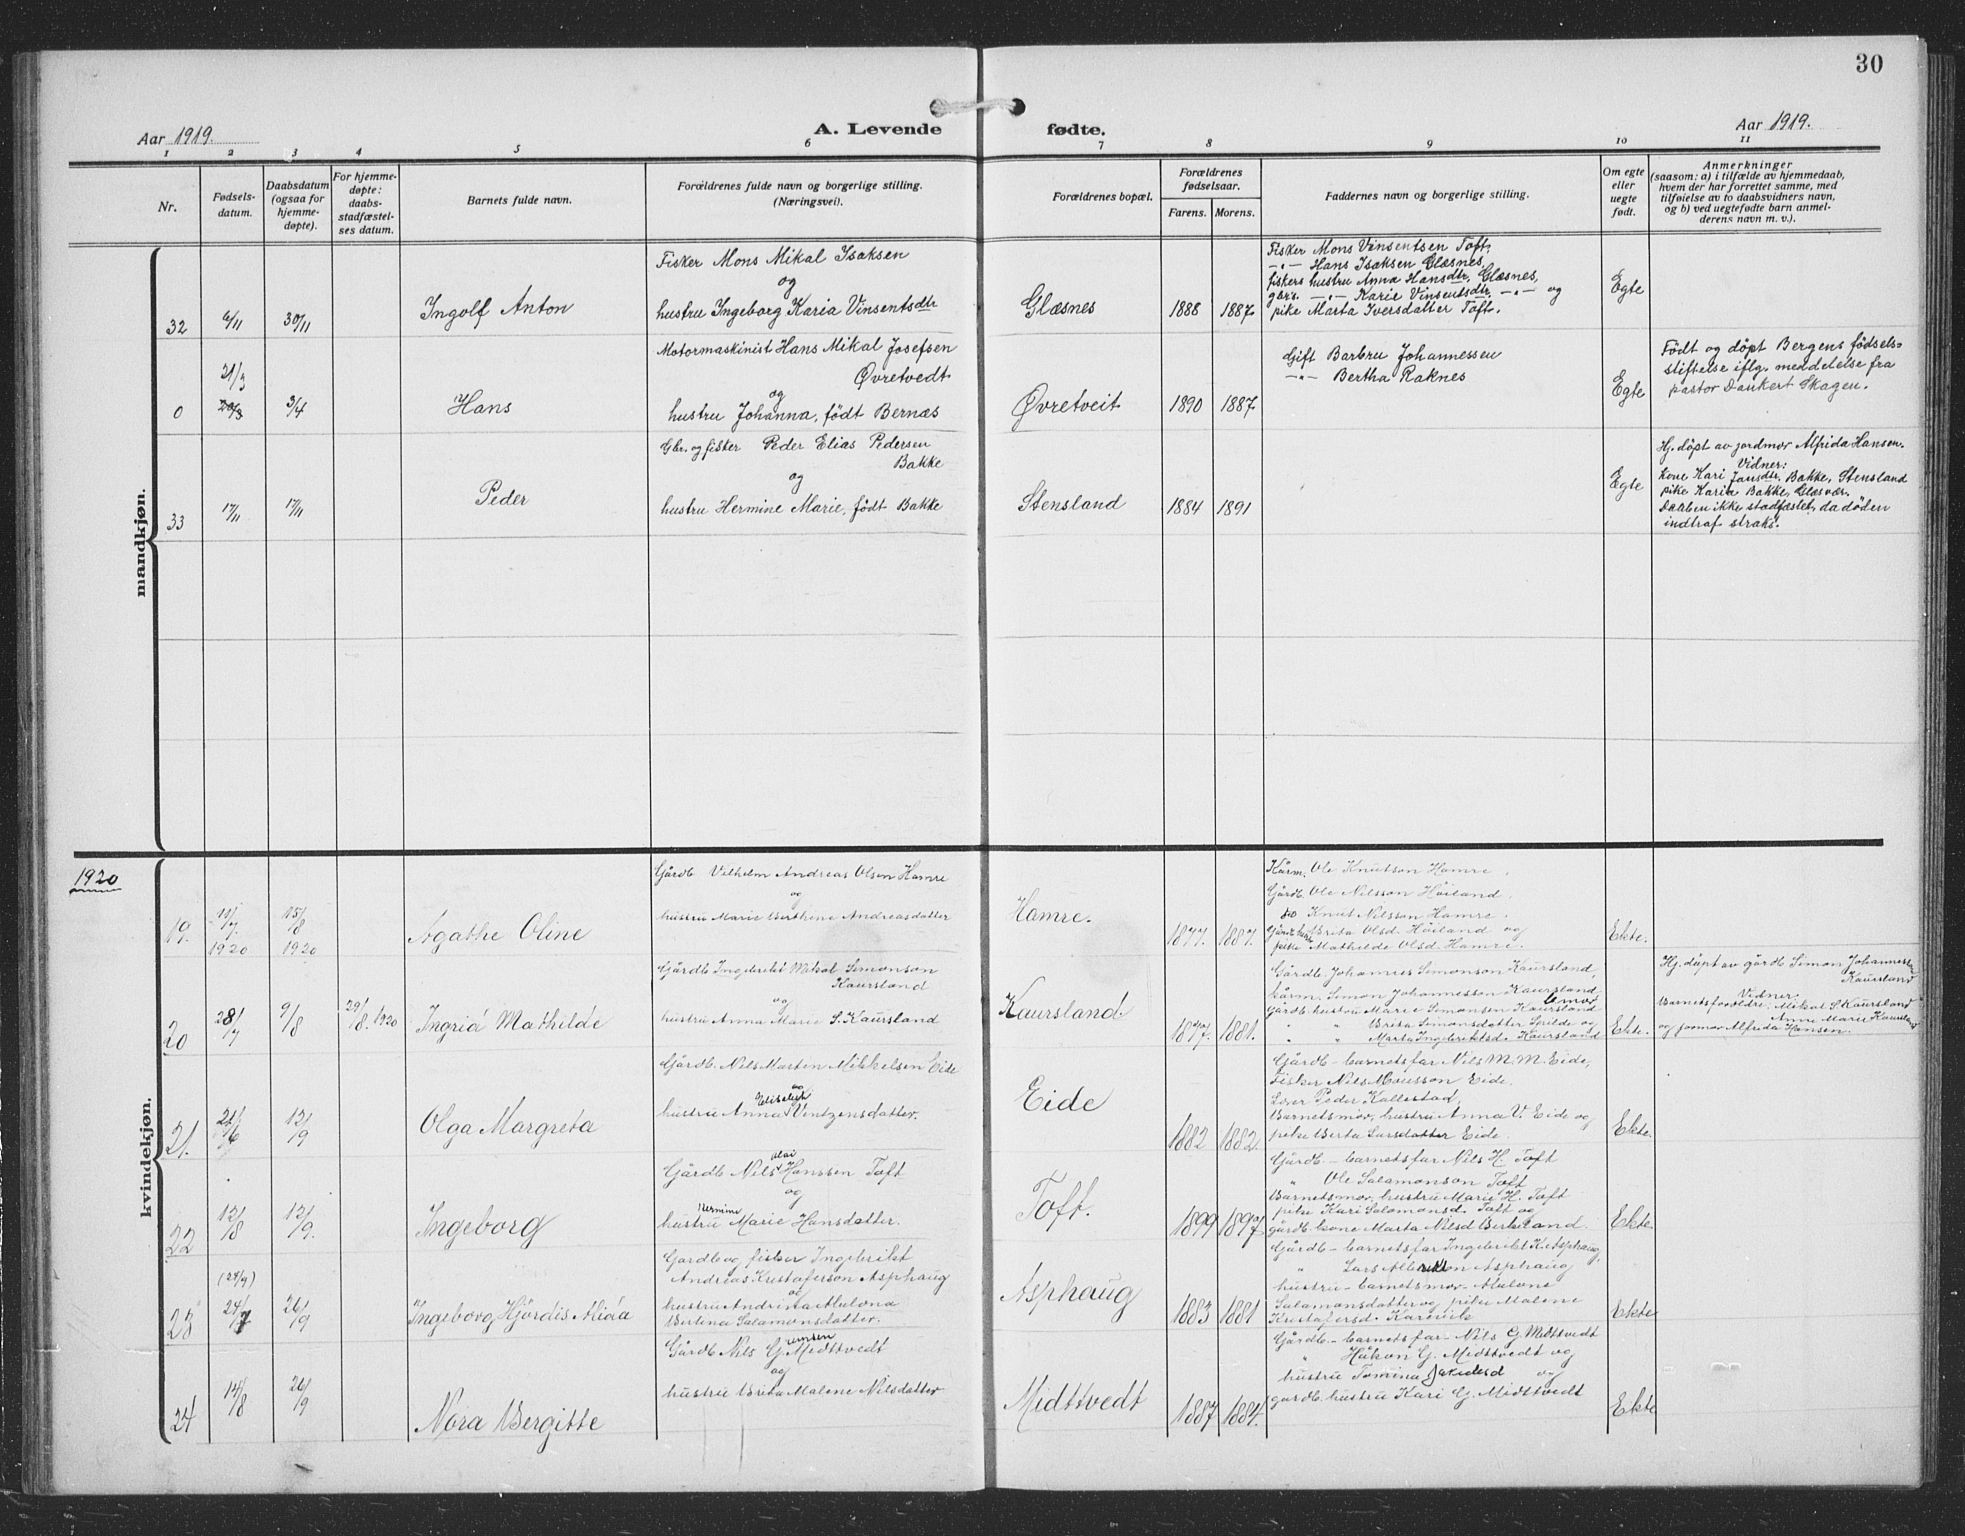 30
Aar 1919.
A. Levende fødte.
Aar 1919.
1 2 3 4 5 6 7 8 9 10 11
Nr.
Fødsels-
datum.
Daabsdatum
(ogsaa for
hjemme-
døpte).
For hjemme-
døpte:
daabs-
stadfæstel-
ses datum.
Barnets fulde navn.
Forældrenes fulde navn og borgerlige stilling.
(Næringsvei).
Forældrenes bopæl.
Forældrenes
fødselsaar.
Farens. Morens.
Faddernes navn og borgerlige stilling.
Om egte
eller
uegte
født.
Anmerkninger
(saasom: a) i tilfælde av hjemmedaab,
hvem der har forrettet samme, med
tilføielse av to daabsvidners navn,
og b) ved uegtefødte barn anmel-
derens navn m. v.).
mandkjøn.
32
6/11
30/11
Ingolf Anton
Fisker Mons Mikal Isaksen
og
hustru Ingeborg Karia Vinsentsdtr
Glæsnes
1888 1887
Fisker Mons Vinsentsen Toft,
-"- Hans Isaksen Glæsnes,
fiskers hustru Anna Hansdtr. Glæsnes,
gbr's. -"- Karie Vinsentsdtr. -"- og
pike Marta Iversdatter Toft.
Egte
0
21/3
20/3
3/4
Hans
Motormaskinist Hans Mikal Josefsen
Øvretvedt
og
hustru Johanna, født Bernæs
Øvretveit
1890 1887
Gift Barbru Johannessen
-"- Bertha Raknes
Egte
Født og døpt Bergens fødsels-
stiftelse iflg. meddelelse fra
pastor Dankert Skagen.
33
17/11
17/11
Peder
Gbr. og fisker Peder Elias Pedersen
Bakke
og
hustru Hermine Marie, født Bakke
Stensland
1884 1891
Egte
Hj. døpt av jordmor Alfrida Hansen.
Vidner:
Kone Kari Jansdtr. Bakke, Stensland
pike Karia Bakke, Glæsvær.
Daaben ikke stadfæstet, da døden
indtraf straks.
1920
kvindekjøn.
19.
11/7
1920
15/8
1920
Agathe Oline
Gårdb. Vilhelm Andreas Olsen Hamre
og
hustru Marie Berthine Andreasdatter
Hamre.
1877. 1887.
Kårm. Ole Knutson Hamre,
Gårdb. Ole Nilsson Høiland,
do Knut Nilsson Hamre,
Brita Olsd. Høiland og
pike Mathilde Olsd. Hamre.
Ekte.
20
28/7
9/8
29/8. 1920
Ingrid Mathilde
Gårdb Ingebrikt Mikal Simonson
Kaursland
og
hustru Anna Marie S. Kaursland
Kaursland
1877. 1881.
Gårdb. Johannes Simonson Kaursland,
kårm. Simon Johannesson Kaursland
gårdb hustru Marie Simonsen Kaursland
" " Brita Simonsdatter Spilde og
" " Marta Ingebriktsd. Kaursland
Ekte.
Hj. døpt av gårdb Simon Johannesson
Kaursland
Vidner:
Barnets foreldre: Mikal S Kaursland
Anne Marie Kaursland
og jormor Alfrida Hansen.
21.
21/6
12/9
Olga Margreta
Gårdb. Nils Martin Mikkelsen Eide
og
Eliseløth
hustru Anna Ventzensdatter.
Eide
1882 1882
Gårdb. - barnets far Nils M. M. Eide,
Fisker Nils Monsson Eide.
Peder Kallestad,
Barnets mor, hustru Anna V. Eide og
pike Berta Larsdatter Eide.
Ekte.
22
12/8
12/9.
Ingeborg
Olai
Gårdb Nils Hanssen Toft
og
Hermine
hustru Marie Hansdatter.
Toft.
1899 1897
Gårdb. - barnets far Nils H. Toft
" Ole Salamonson Toft
Barnets mor, hustru Marie H. Toft
pike Kari Salamonsd. Toft og
gårdb. kone Marta Nilsd Berkeland.
Ekte
23
(24/7)
24/7
26/9
Ingeborg Hjørdis Alida
Gardb og fisker Ingebrikt
Andreas Kristoferson Asphaug
og
hustru Andrikka Malena
Berlina Salamonsdatter.
Asphaug
1883 1881
Gårdb - barnets far Ingebrikt K. Asphaug,
" Lars Albriktson Asphaug
hustru - barnets mor - Malene
Salamonsdatter og pike Malene
Kristofersd. Karevik
Ekte
24
14/8
26/9
Nora Bergitte
Gårdb Nils G. Midttvedt
og
hustru Brita Malene Nilsdatter
Midttvedt
1887 1884.
Gårdb. - barnets far - Nils G Midttvedt
" Håkon G. Midttvedt og
hustru Tomina Jakobsd og
gardb. hustru Kari G. Midttvedt
Ekte